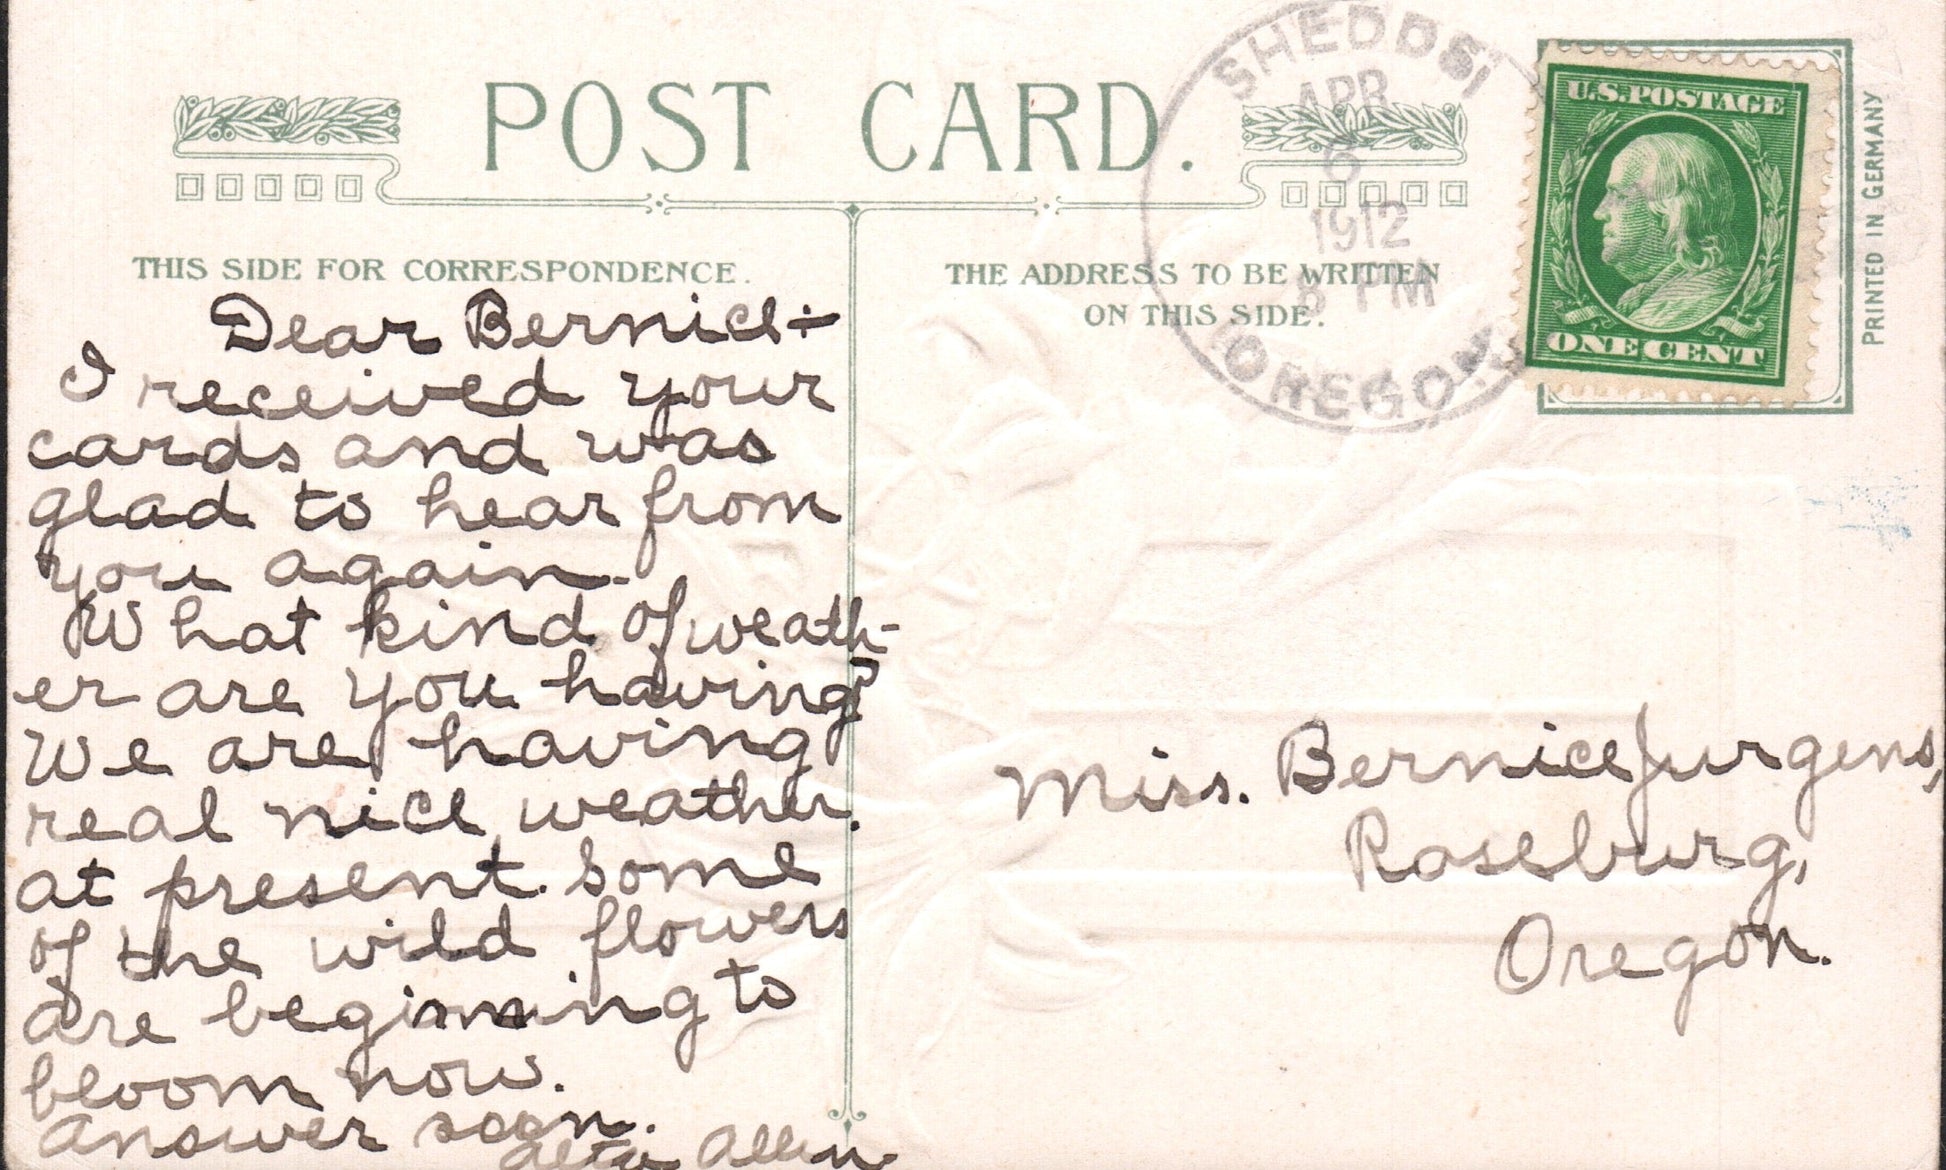 POST CARD.
SHEDDS
APR
6
1912
PM
OREGON
U.S.POSTAGE
ONE CENT
PRINTED IN GERMANY
THIS SIDE FOR CORRESPONDENCE.
THE ADDRESS TO BE WRITTEN
ON THIS SIDE.
Dear Bernice:—
I received your
cards and was
glad to hear from
you again.
What kind of weath-
er are you having?
We are having
real nice weather.
at present. Some
of the wild flowers
are beginning to
bloom now.
Answer soon.
Alta Allen
Miss. Bernice Jurgens,
Roseburg,
Oregon.